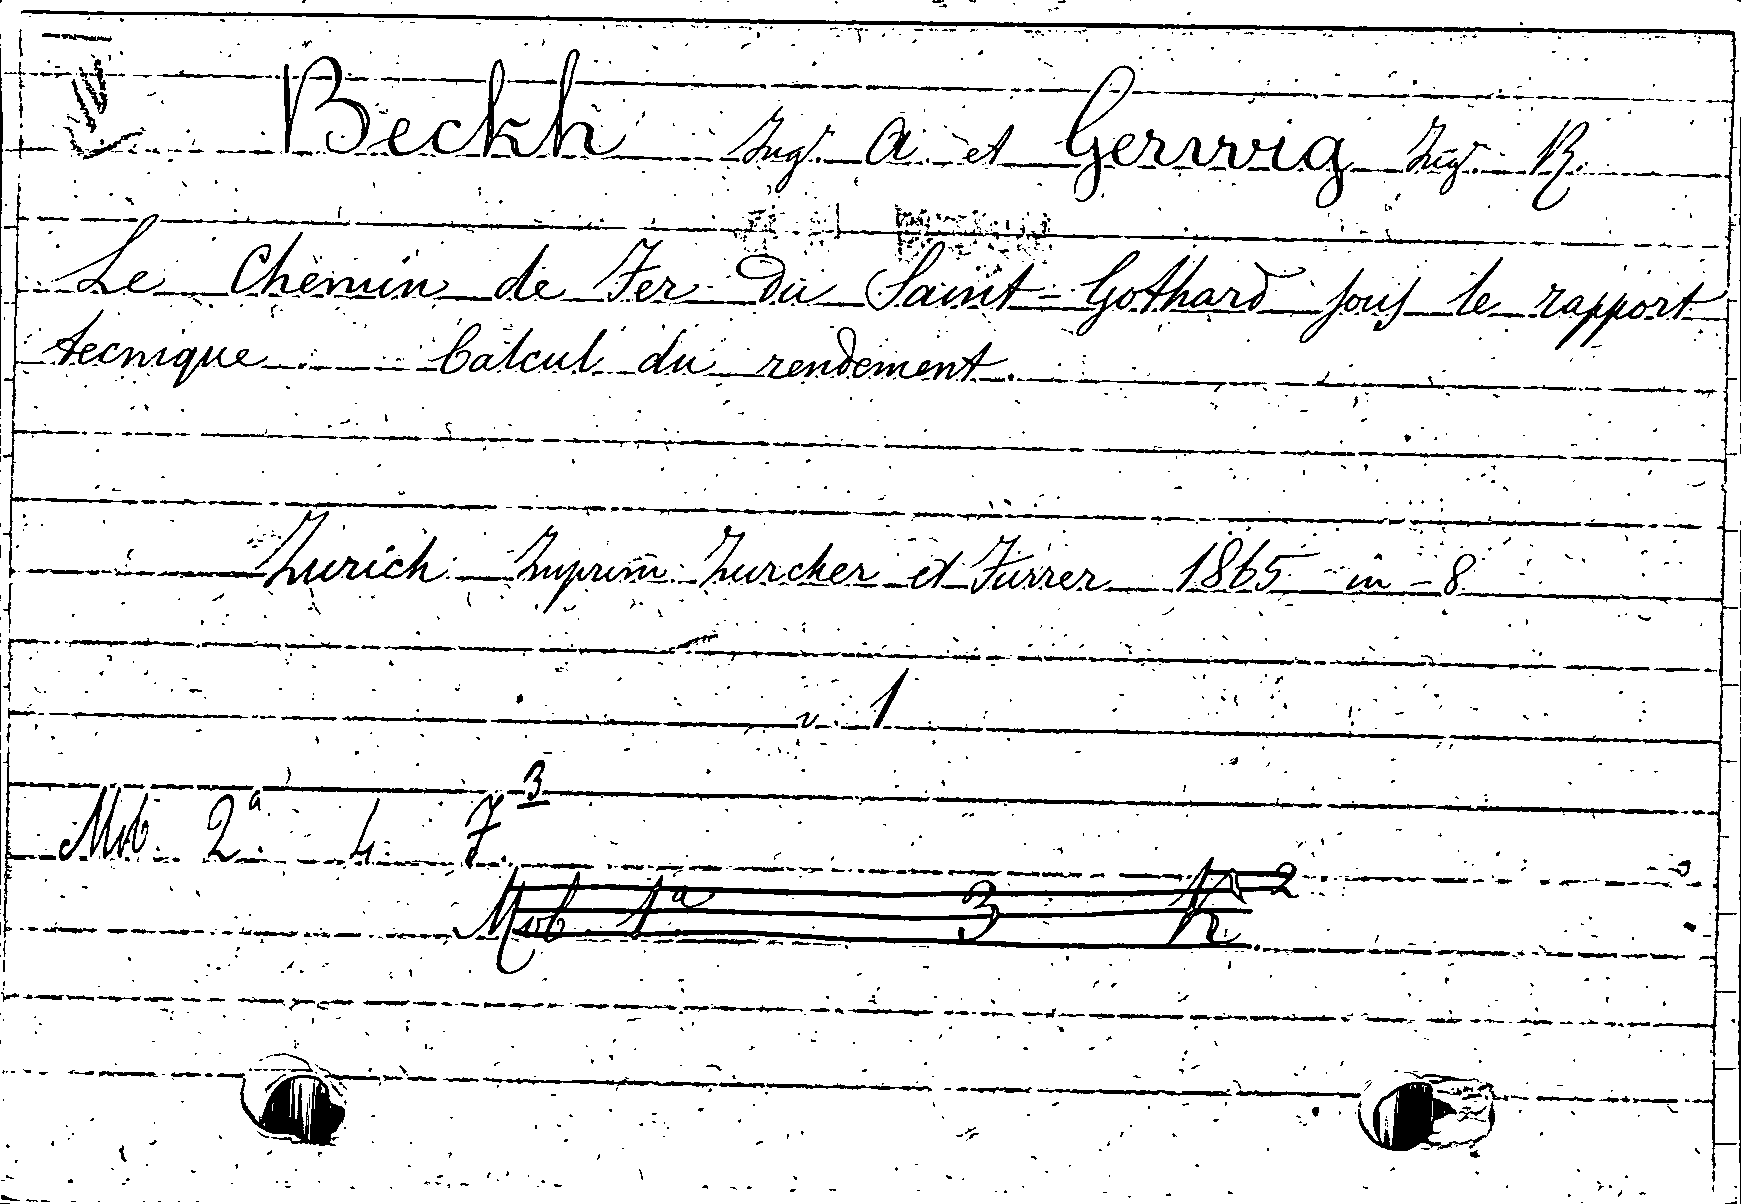 Beckh Ingr A. et Gerwig Ingr R.
Le Chemin de Fer du Saint-Gothard sous le rapport
tecnique Calcul du rendement.
Zurich Imprim Zurcher et Furrer 1865 in-8
v. 1
Mob. 2a 4. 7.3
Mob 1a 3 2